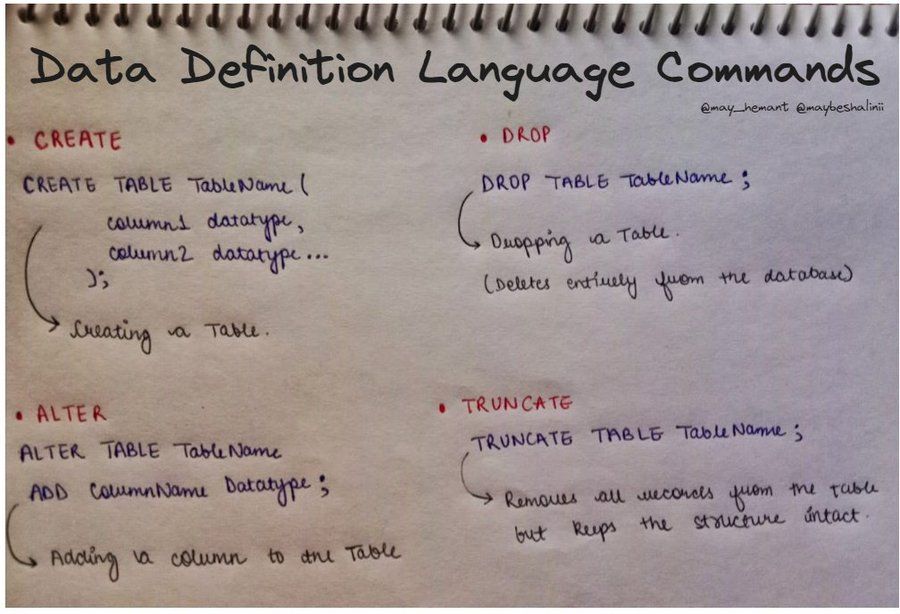 Data Definition Language Commands
@may_hemant @maybeshalinii
• CREATE
CREATE TABLE TableName (
column1 datatype,
column2 datatype...
);
Creating a Table.
• DROP
DROP TABLE TableName ;
Dropping a Table.
(Deletes entirely from the database)
• ALTER
ALTER TABLE TableName
ADD ColumnName Datatype ;
Adding a column to the Table
• TRUNCATE
TRUNCATE TABLE TableName ;
Removes all records from the table
but keeps the structure intact.